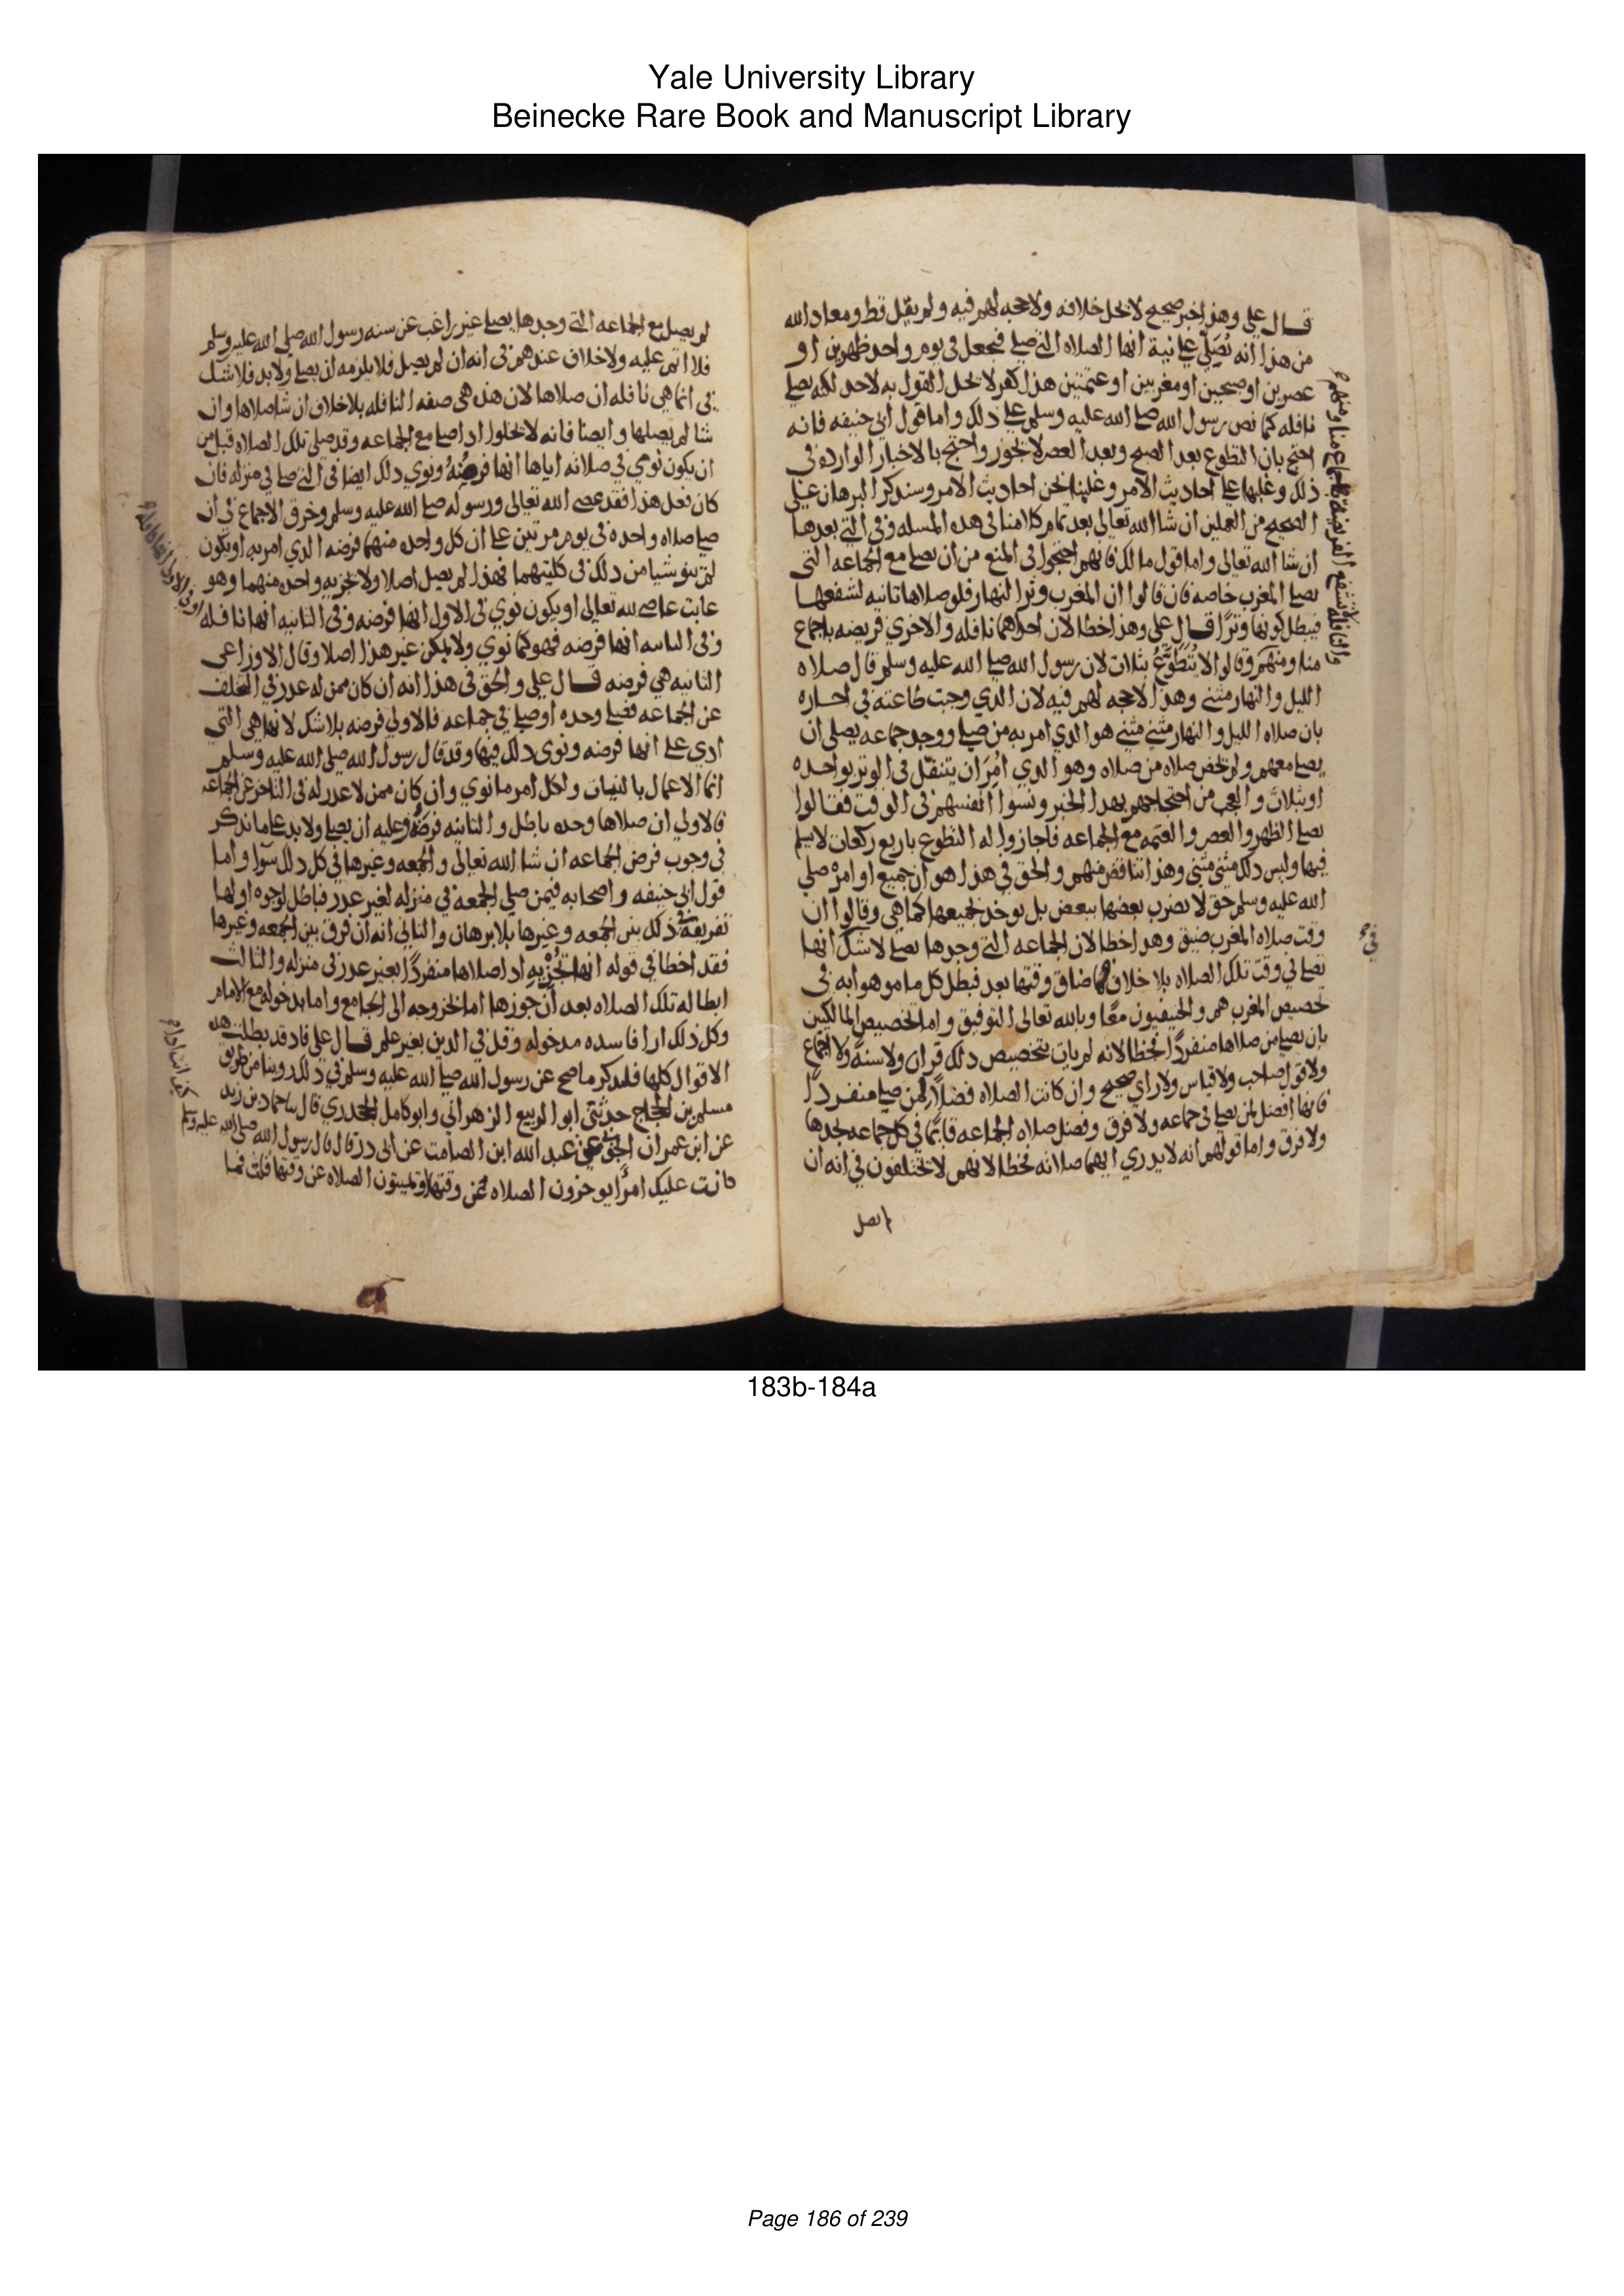 Yale University Library
Beinecke Rare Book and Manuscript Library
قال علي وهذا خبر صحيح لا يحل خلافه ولا حجه لهم فيه ولم يقل قط ومعاد الله
من هذا انه يصلي علي نية انها الصلاه التي صلي فيجعل في يوم واحد ظهرين او
عصرين او صبحين او مغربين او عتمتين هذا كفر لا يحل القول به لاحد لكنه يصلي
نافله كما نص رسول الله صلي الله عليه وسلم علي دلك واما قول ابي حنيفه فانه
احتج بان التطوع بعد الصبح وبعد العصر لا يجوز واحتج بالاخبار الوارده في
ذلك وغلبها علي احاديث الامر وغلبنا نحن احاديث الامر وسندكر البرهان علي
الصحيح من العملين ان شا الله تعالي بعد تمام كلامنا في هده المسله وفي التي بعدها
ان شا الله تعالي واما قول مالك فانهم احتجوا في المنع من ان يصلي مع الجماعه التي
يصلي المغرب خاصه فان قالوا ان المغرب وتر النهار فلو صلاها تانيه لشفعها
فيبطل كونها وترا قال علي وهذا خطا لان احداهما نافله والاخري فريضه باجماع
منا ومنهم وقالوا لا يتطوع بثلات لان رسول الله صلي الله عليه وسلم قال صلاه
الليل والنهار مثني وهذا لا حجه لهم فيه لان الدي وجبت طاعته في اخباره
بان صلاه الليل والنهار مثني مثني هو الدي امر به من صلي ووجد جماعه يصلي ان
يصلي معهم ولم يخص صلاه من صلاه وهو الدي امر ان يتنفل في الوتر بواحده
او بثلات والعجب من احتجاجهم بهدا الخبر ونسوا انفسهم في الوقت فقالوا
يصلي الظهر والعصر والعتمه مع الجماعه فاجازوا له التطوع باربع ركعات لا يسلم
فيها وليس دلك مثني مثني وهذا تناقض منهم والحق في هذا هو ان جميع اوامره صلي
الله عليه وسلم حق لا يضرب بعضها ببعض بل يوخد بجميعها كما هي وقالوا ان
وقت صلاه المغرب ضيق وهدا خطا لان الجماعه التي وجدها يصلي لا شك انها
تصلي في وقت تلك الصلاه بلا خلاف فما ضاق وقتها بعد فبطل كل ما موهوا به في
تخصيص المغرب هم والحنيفيون معا وبالله تعالي التوفيق واما تخصيص المالكيين
بان يصلي من صلاها منفردا فخطا لانه لم يات بتخصيص دلك قران ولا سنة ولا اجماع
ولا قول صاحب ولا قياس ولا راي صحيح وان كانت الصلاه فضلا لمن صلي منفردا
فانها افضل لمن يصلي في جماعه ولا فرق وفضل صلاه الجماعه قائما في كل جماعه يجدها
ولا فرق واما قولهم انه لا يدري ايهما صلاته فخطا لانهم لا يختلفون في انه ان
لم يصل
في
لم يصل مع الجماعه التي وجدها يصلي غير راغب عن سنه رسول الله صلي الله عليه وسلم
فلا اتم عليه ولا خلاف عندهم في انه ان لم يصل فلا يلزمه ان يصلي ولا بد فلا شك
في انما هي نافله ان صلاها لان هذه هي صفه النافله بلا خلاف ان شا صلاها وان
شا لم يصلها وايضا فانه لا يخلوا ادا صلي مع الجماعه وقد صلي تلك الصلاه قبل من
ان يكون نوي في صلاته اياها انها فرضه ونوي دلك ايضا في التي صلي في منزله فان
كان فعل هذا فقد عصي الله تعالي ورسوله صلي الله عليه وسلم وخرق الاجماع في ان
صلي صلاه واحده في يوم مرتين علي ان كل واحده منهما فرضه الدي امر به او يكون
لم ينو شيا من دلك في كليتهما فهذا لم يصل اصلا ولا تجزيه واحده منهما وهو
عابت عاصي لله تعالي او يكون نوي في الاولي انها فرضه وفي التانيه انها نافله
وفي التانيه انها فرضه فهو كما نوي ولا يمكن غير هذا اصلا وقال الاوزاعي
التانيه هي فرضه قال علي والحق في هذا انه ان كان ممن له عدر في التخلف
عن الجماعه فصلي وحده او صلي في جماعه فالاولي فرضه بلا شك لانها هي التي
ادي علي انها فرضه ونوي دلك فيها وقد قال رسول الله صلي الله عليه وسلم
انما الاعمال بالنيات ولكل امر ما نوي وان كان ممن لا عدر له في التاخر عن الجماعه
فالاولي ان صلاها وحده باطل والتانيه فرضه وعليه ان يصلي ولا بد علي ما ندكر
في وجوب فرض الجماعه ان شا الله تعالي والجمعه وغيرها في كل دلك سوا واما
قول ابي حنيفه واصحابه فيمن صلي الجمعه في منزله لغير عدر فباطل لوجوه اولها
تفريقه في ذلك بين الجمعه وغيرها بلا برهان والتاني انه ان فرق بين الجمعه وغيرها
فقد اخطا في قوله انها تجزيه ادا صلاها منفردا بغير عدر في منزله والثالث
ابطاله تلك الصلاه بعد ان جوزها اما بخروجه الي الجامع واما بدخوله مع الامام
وكل ذلك ارا فاسده مدخوله وقول في الدين بغير علم قال علي فاد قد بطلت هده
الاقوال كلها فلندكر ما صح عن رسول الله صلي الله عليه وسلم في ذلك روينا من طريق
مسلم بن الحجاج حدثني ابو الربيع الزهراني وابو كامل الجحدري قال نا حماد بن زيد
عن ابي عمران الجوني عن عبد الله ابن الصامت عن ابي در قال قال رسول الله صلي الله عليه وسلم
كانت عليك امرا يوخرون الصلاه عن وقتها او يميتون الصلاه عن وقتها قلت فما
كيف انت اذا
183b-184a
Page 186 of 239